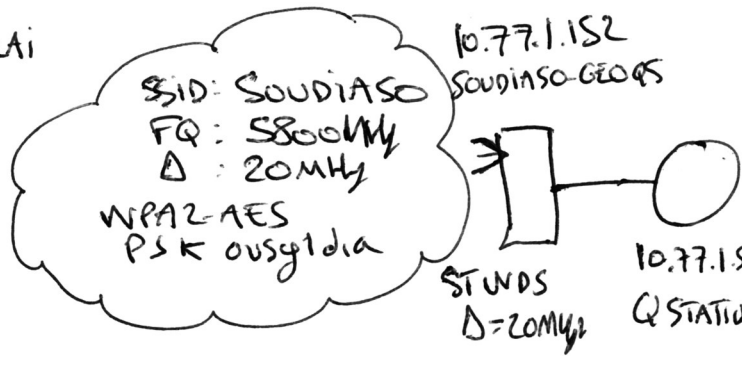 Ai
SSID: SOUDIASO
FQ: 5800MHz
Δ : 20MHz
WPA2-AES
PSK ovsy1dia
10.77.1.152
SOUDIASO-GEOQS
STWDS
Δ=20MHz
10.77.1.5
QSTATIO